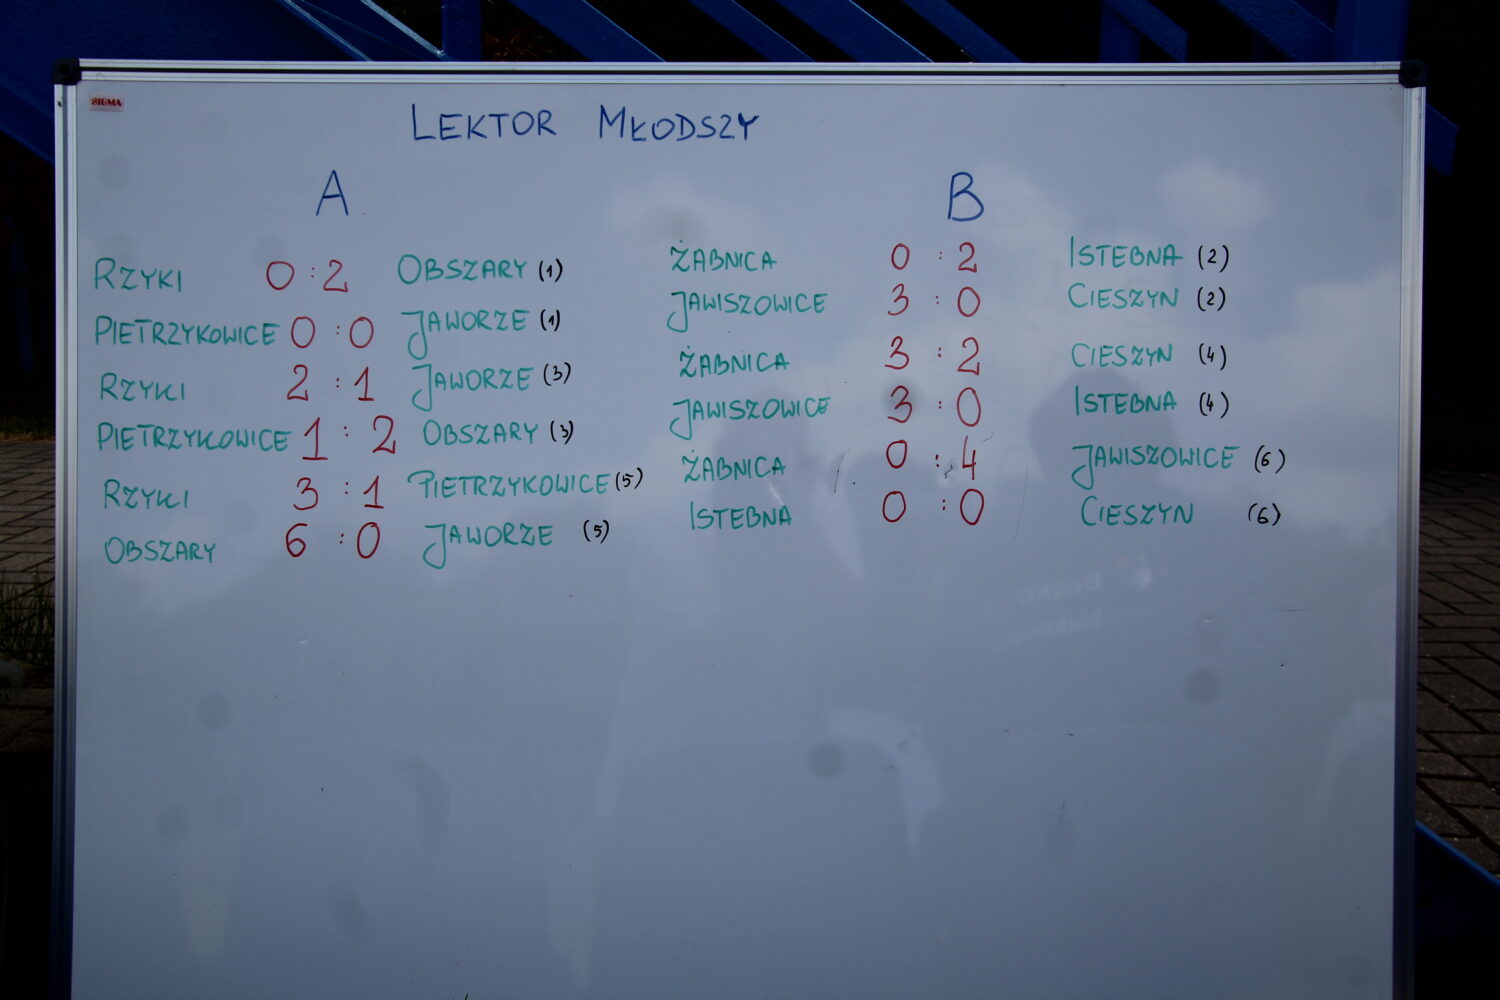 SIGMA
LEKTOR MŁODSZY
A
RZYKI 0 : 2 OBSZARY (1)
PIETRZYKOWICE 0 : 0 JAWORZE (1)
RZYKI 2 : 1 JAWORZE (3)
PIETRZYKOWICE 1 : 2 OBSZARY (3)
RZYKI 3 : 1 PIETRZYKOWICE (5)
OBSZARY 6 : 0 JAWORZE (5)
B
ŻABNICA 0 : 2 ISTEBNA (2)
JAWISZOWICE 3 : 0 CIESZYN (2)
ŻABNICA 3 : 2 CIESZYN (4)
JAWISZOWICE 3 : 0 ISTEBNA (4)
ŻABNICA 0 : 4 JAWISZOWICE (6)
ISTEBNA 0 : 0 CIESZYN (6)